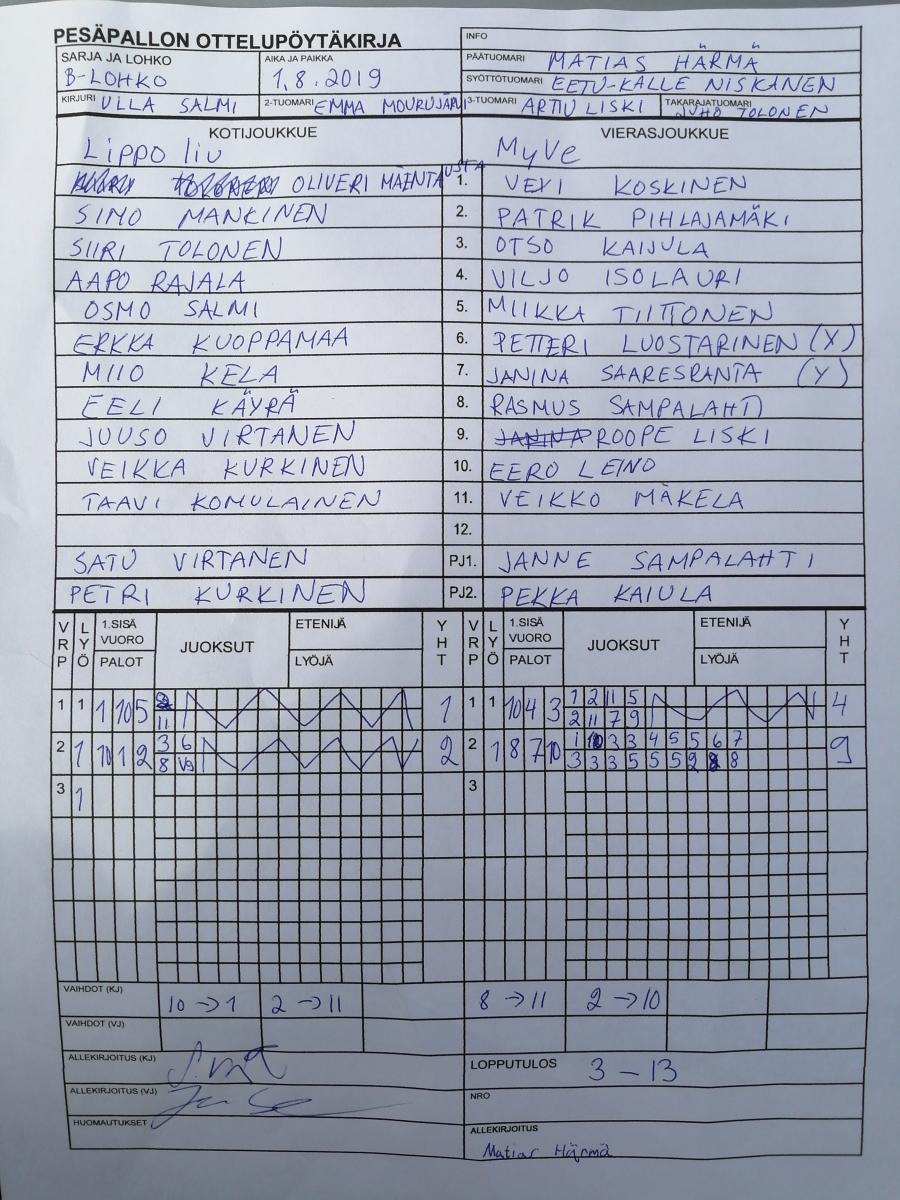 PESÄPALLON OTTELUPÖYTÄKIRJA
INFO
SARJA JA LOHKO
B-LOHKO
AIKA JA PAIKKA
1.8.2019
PÄÄTUOMARI MATIAS HÄRMÄ
SYÖTTÖTUOMARI EETU-KALLE NISKANEN
KIRJURI ULLA SALMI
2-TUOMARI EMMA MOURUJÄRVI
3-TUOMARI ARTTU LISKI
TAKARAJATUOMARI JUHO TOLONEN
KOTIJOUKKUE
Lippo liu
VIERASJOUKKUE
MyVe
OLIVERI MÄENTAUSTA 1. VEXI KOSKINEN
SIMO MANKINEN 2. PATRIK PIHLAJAMÄKI
SIIRI TOLONEN 3. OTSO KAIJULA
AAPO RAJALA 4. VILJO ISOLAURI
OSMO SALMI 5. MIIKKA TIITTONEN
ERKKA KUOPPAMAA 6. PETTERI LUOSTARINEN (X)
MIIO KELA 7. JANINA SAARESRANTA (Y)
EELI KÄYRÄ 8. RASMUS SAMPALAHTI
JUUSO VIRTANEN 9. JANINA ROOPE LISKI
VEIKKA KURKINEN 10. EERO LEINO
TAAVI KOMULAINEN 11. VEIKKO MÄKELA
12.
SATU VIRTANEN PJ1. JANNE SAMPALAHTI
PETRI KURKINEN PJ2. PEKKA KAIULA
VRP LYÖ 1.SISÄ VUORO PALOT JUOKSUT ETENIJÄ LYÖJÄ YHT VRP LYÖ 1.SISÄ VUORO PALOT JUOKSUT ETENIJÄ LYÖJÄ YHT
1 1 1 10 5 11 1 1 1 10 4 3 1 2 11 5 4
2 11 7 9
2 1 10 1 2 3 6 2 2 1 8 7 10 1 10 3 3 4 5 5 6 7 9
8 V9 3 3 3 5 5 5 9 8 8
3 1 3
VAIHDOT (KJ) 10 → 1 2 → 11 8 → 11 2 → 10
VAIHDOT (VJ)
ALLEKIRJOITUS (KJ)
LOPPUTULOS 3 – 13
ALLEKIRJOITUS (VJ)
NRO
HUOMAUTUKSET
ALLEKIRJOITUS
Matias Härmä